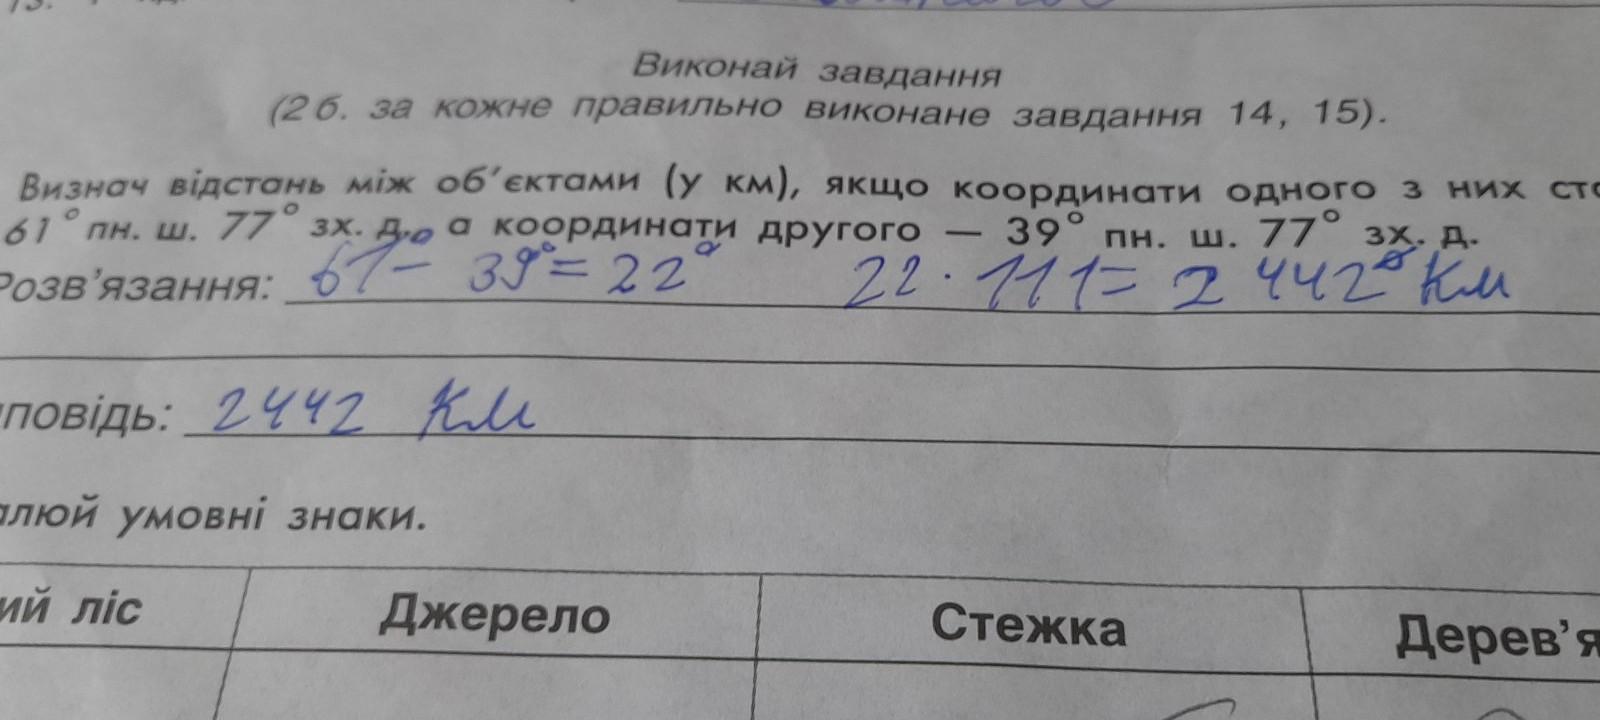 13.
Виконай завдання
(2 б. за кожне правильно виконане завдання 14, 15).
Визнач відстань між об'єктами (у км), якщо координати одного з них ст
61° пн. ш. 77° зх. д., а координати другого — 39° пн. ш. 77° зх. д.
Розв'язання: 61°- 39°= 22° 22 · 111= 2 442 км
повідь: 2442 км
алюй умовні знаки.
ий ліс Джерело Стежка Дерев'я